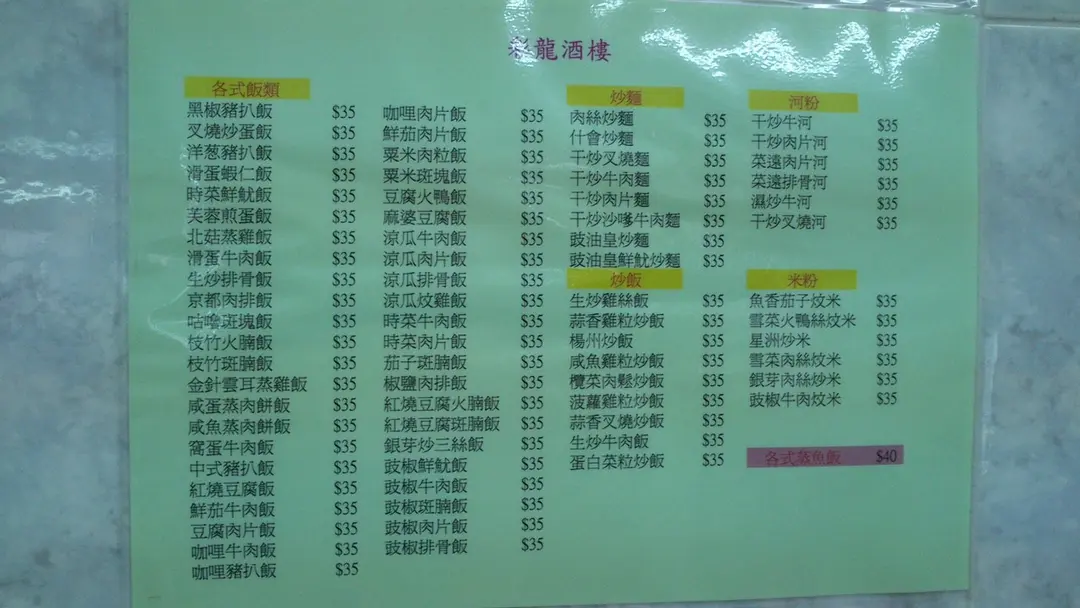 彩龍酒樓
各式飯類
黑椒豬扒飯 $35
叉燒炒蛋飯 $35
洋葱豬扒飯 $35
滑蛋蝦仁飯 $35
時菜鮮魷飯 $35
芙蓉煎蛋飯 $35
北菇蒸雞飯 $35
滑蛋牛肉飯 $35
生炒排骨飯 $35
京都肉排飯 $35
咕嚕斑塊飯 $35
枝竹火腩飯 $35
枝竹斑腩飯 $35
金針雲耳蒸雞飯 $35
咸蛋蒸肉餅飯 $35
咸魚蒸肉餅飯 $35
窩蛋牛肉飯 $35
中式豬扒飯 $35
紅燒豆腐飯 $35
鮮茄牛肉飯 $35
豆腐肉片飯 $35
咖哩牛肉飯 $35
咖哩豬扒飯 $35
咖哩肉片飯 $35
鮮茄肉片飯 $35
粟米肉粒飯 $35
粟米斑塊飯 $35
豆腐火鴨飯 $35
麻婆豆腐飯 $35
涼瓜牛肉飯 $35
涼瓜肉片飯 $35
涼瓜排骨飯 $35
涼瓜炆雞飯 $35
時菜牛肉飯 $35
時菜肉片飯 $35
茄子斑腩飯 $35
椒鹽肉排飯 $35
紅燒豆腐火腩飯 $35
紅燒豆腐斑腩飯 $35
銀芽炒三絲飯 $35
豉椒鮮魷飯 $35
豉椒牛肉飯 $35
豉椒斑腩飯 $35
豉椒肉片飯 $35
豉椒排骨飯 $35
炒麵
肉絲炒麵 $35
什會炒麵 $35
干炒叉燒麵 $35
干炒牛肉麵 $35
干炒肉片麵 $35
干炒沙嗲牛肉麵 $35
豉油皇炒麵 $35
豉油皇鮮魷炒麵 $35
炒飯
生炒雞絲飯 $35
蒜香雞粒炒飯 $35
楊州炒飯 $35
咸魚雞粒炒飯 $35
欖菜肉鬆炒飯 $35
菠蘿雞粒炒飯 $35
蒜香叉燒炒飯 $35
生炒牛肉飯 $35
蛋白菜粒炒飯 $35
河粉
干炒牛河 $35
干炒肉片河 $35
菜遠肉片河 $35
菜遠排骨河 $35
濕炒牛河 $35
干炒叉燒河 $35
米粉
魚香茄子炆米 $35
雪菜火鴨絲炆米 $35
星洲炒米 $35
雪菜肉絲炆米 $35
銀芽肉絲炒米 $35
豉椒牛肉炆米 $35
各式蒸魚飯 $40